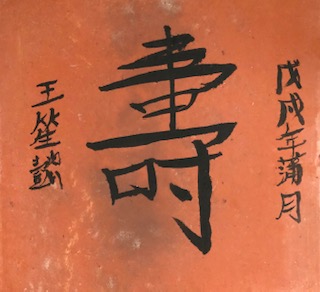 戊戌年蒲月
壽
王笙懿